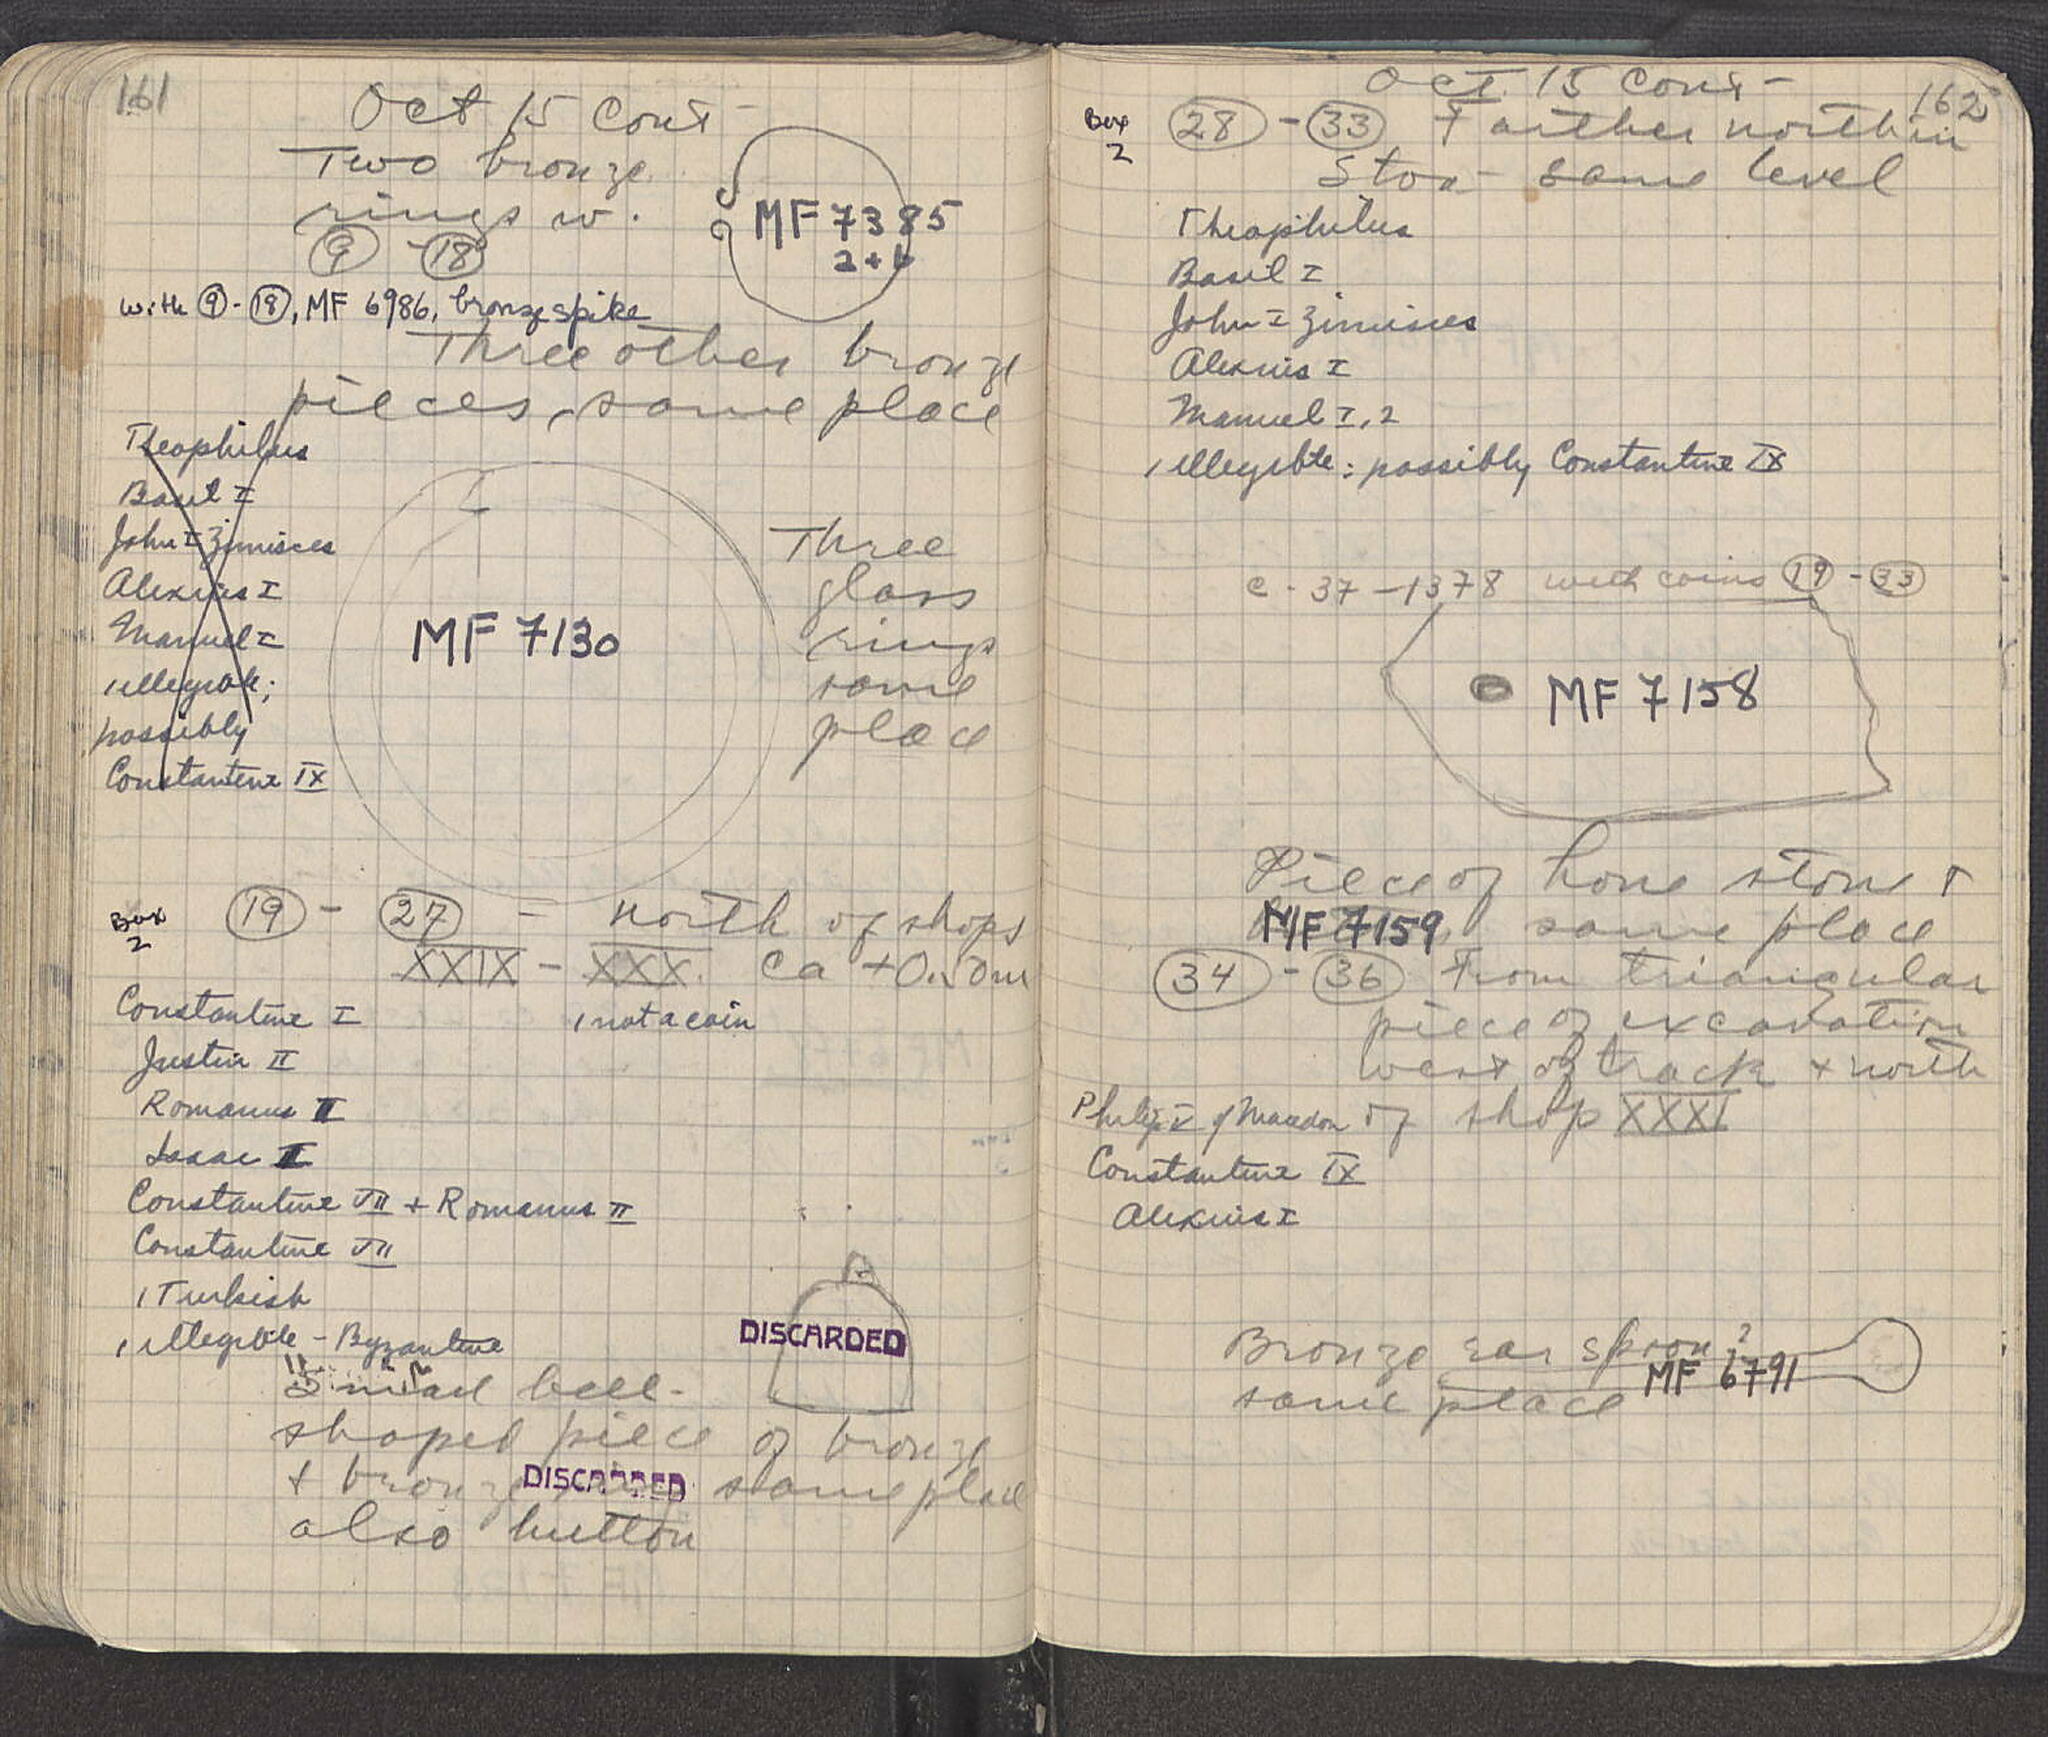 161
Oct 15 Cont-
Two bronze
rings w.
9 - 18
MF 7385
a + b
with 9 - 18, MF 6986, bronze spike
Three other bronze
pieces, same place
Theophilus
Basil I
John I Zimisces
Alexius I
Manuel I
1 illegible;
possibly
Constantine IX
MF 7130
Three
glass
rings
same
place
Box
2
19 - 27 - north of shops
XXIX - XXX. ca +0.50m
Constantine I
1 not a coin
Justin II
Romanus II
Isaac II
Constantine VII + Romanus II
Constantine VII
1 Turkish
1 illegible - Byzantine
DISCARDED
Small bell-
shaped piece of bronze
+ bronze DISCARDED same place
also button
Oct. 15 Cont-
162
Box
2
28 - 33 Farther north in
Stoa - same level
Theophilus
Basil I
John I Zimisces
Alexius I
Manuel I, 2
1 illegible: possibly Constantine IX
C-37-1378 with coins 19 - 33
MF 7158
Piece of hone stone +
MF 7159 same place
34 - 36 From triangular
piece of excavation
west of track + north
of shop XXXI
Philip V of Macedon
Constantine IX
Alexius I
Bronze ear spoon?
same place MF 6791